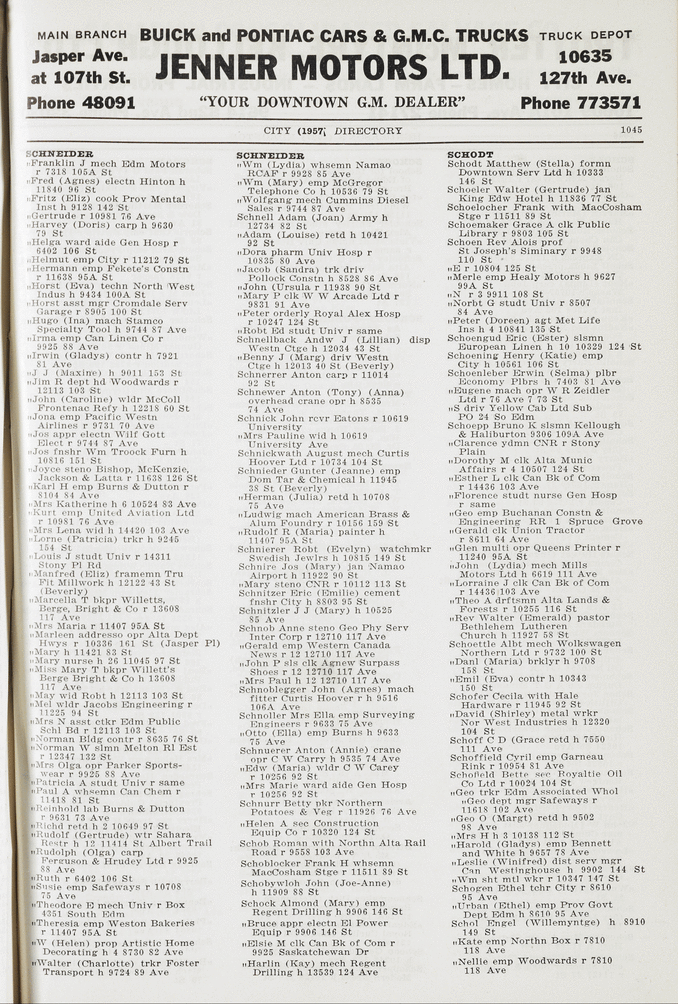 MAIN BRANCH BUICK and PONTIAC CARS & G.M.C. TRUCKS TRUCK DEPOT
Jasper Ave. JENNER MOTORS LTD. 10635
at 107th St. 127th Ave.
Phone 48091 "YOUR DOWNTOWN G.M. DEALER" Phone 773571
CITY (1957) DIRECTORY 1045
SCHNEIDER
"Franklin J mech Edm Motors
r 7318 105A St
"Fred (Agnes) electn Hinton h
11840 96 St
"Fritz (Eliz) cook Prov Mental
Inst h 9128 142 St
"Gertrude r 10981 76 Ave
"Harvey (Doris) carp h 9630
79 St
"Helga ward aide Gen Hosp r
6402 106 St
"Helmut emp City r 11212 79 St
"Hermann emp Fekete's Constn
r 11638 95A St
"Horst (Eva) techn North West
Indus h 9434 100A St
"Horst asst mgr Cromdale Serv
Garage r 8905 100 St
"Hugo (Ina) mach Stamco
Specialty Tool h 9744 87 Ave
"Irma emp Can Linen Co r
9925 88 Ave
"Irwin (Gladys) contr h 7921
81 Ave
"J J (Maxine) h 9011 153 St
"Jim R dept hd Woodwards r
12113 103 St
"John (Caroline) wldr McColl
Frontenac Refy h 12218 60 St
"Jona emp Pacific Westn
Airlines r 9731 70 Ave
"Jos appr electn Wilf Gott
Elect r 9744 87 Ave
"Jos fnshr Wm Troock Furn h
10816 151 St
"Joyce steno Bishop, McKenzie,
Jackson & Latta r 11638 126 St
"Karl H emp Burns & Dutton r
8104 84 Ave
"Mrs Katherine h 6 10524 83 Ave
"Kurt emp United Aviation Ltd
r 10981 76 Ave
"Mrs Lena wid h 14420 103 Ave
"Lorne (Patricia) trkr h 9245
154 St
"Louis J studt Univ r 14311
Stony Pl Rd
"Manfred (Eliz) framemn Tru
Fit Millwork h 12122 43 St
(Beverly)
"Marcella T bkpr Willetts,
Berge, Bright & Co r 13608
117 Ave
"Mrs Maria r 11407 95A St
"Marleen addresso opr Alta Dept
Hwys r 10336 161 St (Jasper Pl)
"Mary h 11421 83 St
"Mary nurse h 26 11045 97 St
"Miss Mary T bkpr Willett's
Berge Bright & Co h 13608
117 Ave
"May wid Robt h 12113 103 St
"Mel wldr Jacobs Engineering r
11225 94 St
"Mrs N asst ctkr Edm Public
Schl Bd r 12113 103 St
"Norman Bldg contr r 8635 76 St
"Norman W slmn Melton Rl Est
r 12347 132 St
"Mrs Olga opr Parker Sports-
wear r 9925 88 Ave
"Patricia A studt Univ r same
"Paul A whsemn Can Chem r
11418 81 St
"Reinhold lab Burns & Dutton
r 9631 73 Ave
"Richd retd h 2 10649 97 St
"Rudolf (Gertrude) wtr Sahara
Restr h 12 11414 St Albert Trail
"Rudolph (Olga) carp
Ferguson & Hrudey Ltd r 9925
88 Ave
"Ruth r 6402 106 St
"Susie emp Safeways r 10708
75 Ave
"Theodore E mech Univ r Box
4351 South Edm
"Theresia emp Weston Bakeries
r 11407 95A St
"W (Helen) prop Artistic Home
Decorating h 4 8730 82 Ave
"Walter (Charlotte) trkr Foster
Transport h 9724 89 Ave
SCHNEIDER
"Wm (Lydia) whsemn Namao
RCAF r 9928 85 Ave
"Wm (Mary) emp McGregor
Telephone Co h 10536 79 St
"Wolfgang mech Cummins Diesel
Sales r 9744 87 Ave
Schnell Adam (Joan) Army h
12734 82 St
"Adam (Louise) retd h 10421
92 St
"Dora pharm Univ Hosp r
10835 80 Ave
"Jacob (Sandra) trk driv
Pollock Constn h 8528 86 Ave
"John (Ursula r 11938 90 St
"Mary P clk W W Arcade Ltd r
9831 91 Ave
"Peter orderly Royal Alex Hosp
r 10247 124 St
"Robt Ed studt Univ r same
Schnellback Andw J (Lillian) disp
Westn Ctge h 12034 43 St
"Benny J (Marg) driv Westn
Ctge h 12013 40 St (Beverly)
Schnerrer Anton carp r 11014
92 St
Schnewer Anton (Tony) (Anna)
overhead crane opr h 8535
74 Ave
Schnick John rcvr Eatons r 10619
University
"Mrs Pauline wid h 10619
University Ave
Schnickwath August mech Curtis
Hoover Ltd r 10734 104 St
Schnieder Gunter (Jeanne) emp
Dom Tar & Chemical h 11945
38 St (Beverly)
"Herman (Julia) retd h 10708
75 Ave
"Ludwig mach American Brass &
Alum Foundry r 10156 159 St
"Rudolf R (Maria) painter h
11407 95A St
Schnierer Robt (Evelyn) watchmkr
Swedish Jewlrs h 10815 149 St
Schnire Jos (Mary) jan Namao
Airport h 11922 90 St
"Mary steno CNR r 10112 113 St
Schnitzer Eric (Emilie) cement
fnshr City h 8803 95 St
Schnitzler J J (Mary) h 10525
85 Ave
Schnob Anne steno Geo Phy Serv
Inter Corp r 12710 117 Ave
"Gerald emp Western Canada
News r 12 12710 117 Ave
"John P sls clk Agnew Surpass
Shoes r 12 12710 117 Ave
"Mrs Paul h 12 12710 117 Ave
Schnoblegger John (Agnes) mach
fitter Curtis Hoover r h 9516
106A Ave
Schnoller Mrs Ella emp Surveying
Engineers r 9633 75 Ave
"Otto (Ella) emp Burns h 9633
75 Ave
Schnuerer Anton (Annie) crane
opr C W Carry h 9535 74 Ave
"Edw (Maria) wldr C W Carey
r 10256 92 St
"Mrs Marie ward aide Gen Hosp
r 10256 92 St
Schnurr Betty pkr Northern
Potatoes & Veg r 11926 76 Ave
"Helen A sec Construction
Equip Co r 10320 124 St
Schob Roman with Northn Alta Rail
Road r 9558 103 Ave
Schoblocker Frank H whsemn
MacCosham Stge r 11511 89 St
Schobywloh John (Joe-Anne)
h 11909 88 St
Schock Almond (Mary) emp
Regent Drilling h 9906 146 St
"Bruce appr electn El Power
Equip r 9906 146 St
"Elsie M clk Can Bk of Com r
9925 Saskatchewan Dr
"Harlin (Kay) mech Regent
Drilling h 13539 124 Ave
SCHODT
Schodt Matthew (Stella) formn
Downtown Serv Ltd h 10333
146 St
Schoeler Walter (Gertrude) jan
King Edw Hotel h 11836 77 St
Schoelocher Frank with MacCosham
Stge r 11511 89 St
Schoemaker Grace A clk Public
Library r 9803 105 St
Schoen Rev Alois prof
St Joseph's Siminary r 9948
110 St
"E r 10804 125 St
"Merle emp Healy Motors h 9627
99A St
"N r 3 9911 108 St
"Norbt G studt Univ r 8507
84 Ave
"Peter (Doreen) agt Met Life
Ins h 4 10841 135 St
Schoengud Eric (Ester) slsmn
European Linen h 10 10329 124 St
Schoening Henry (Katie) emp
City h 10561 106 St
Schoenleber Erwin (Selma) plbr
Economy Plbrs h 7403 81 Ave
"Eugene mach opr W R Zeidler
Ltd r 76 Ave 7 73 St
"S driv Yellow Cab Ltd Sub
PO 24 So Edm
Schoepp Bruno K slsmn Kellough
& Haliburton 9306 109A Ave
"Clarence ydmn CNR r Stony
Plain
"Dorothy M clk Alta Munic
Affairs r 4 10507 124 St
"Esther L clk Can Bk of Com
r 14436 103 Ave
"Florence studt nurse Gen Hosp
r same
"Geo emp Buchanan Constn &
Engineering RR 1 Spruce Grove
"Gerald clk Union Tractor
r 8611 64 Ave
"Glen multi opr Queens Printer r
11240 95A St
"John (Lydia) mech Mills
Motors Ltd h 6619 111 Ave
"Lorraine J clk Can Bk of Com
r 14436 103 Ave
"Theo A drftsmn Alta Lands &
Forests r 10255 116 St
"Rev Walter (Emerald) pastor
Bethlehem Lutheren
Church h 11927 58 St
Schoettle Albt mech Wolkswagen
Northern Ltd r 9732 100 St
"Danl (Maria) brklyr h 9708
158 St
"Emil (Eva) contr h 10343
150 St
Schofer Cecila with Hale
Hardware r 11945 92 St
"David (Shirley) metal wrkr
Nor West Industries h 12320
104 St
Schoff C D (Grace retd h 7550
111 Ave
Schoffield Cyril emp Garneau
Rink r 10954 81 Ave
Schofield Bette sec Royaltie Oil
Co Ltd r 10024 104 St
"Geo trkr Edm Associated Whol
"Geo dept mgr Safeways r
11618 102 Ave
"Geo O (Margt) retd h 9502
98 Ave
"Mrs H h 3 10138 112 St
"Harold (Gladys) emp Bennett
and White h 9657 78 Ave
"Leslie (Winifred) dist serv mgr
Can Westinghouse h 9902 144 St
"Wm sht mtl wkr r 10347 147 St
Schogen Ethel tchr City r 8610
95 Ave
"Urban (Ethel) emp Prov Govt
Dept Edm h 8610 95 Ave
Schol Engel (Willemyntge) h 8910
149 St
"Kate emp Northn Box r 7810
118 Ave
"Nellie emp Woodwards r 7810
118 Ave